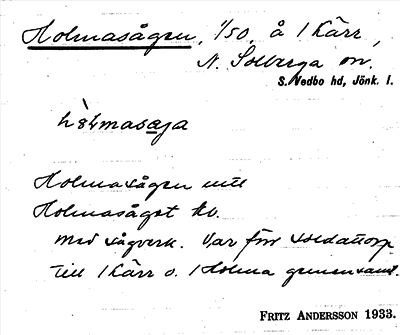 Holmasågen, 1/50, å 1 Kärr,
N. Solberga sn.
S. Vedbo hd, Jönk. l.
Holmasågen mtl
Holmasåget hv.
med sågverk. Var förr soldattorp
till 1 Kärr o. 1 Holma gemensamt.
FRITZ ANDERSSON 1933.